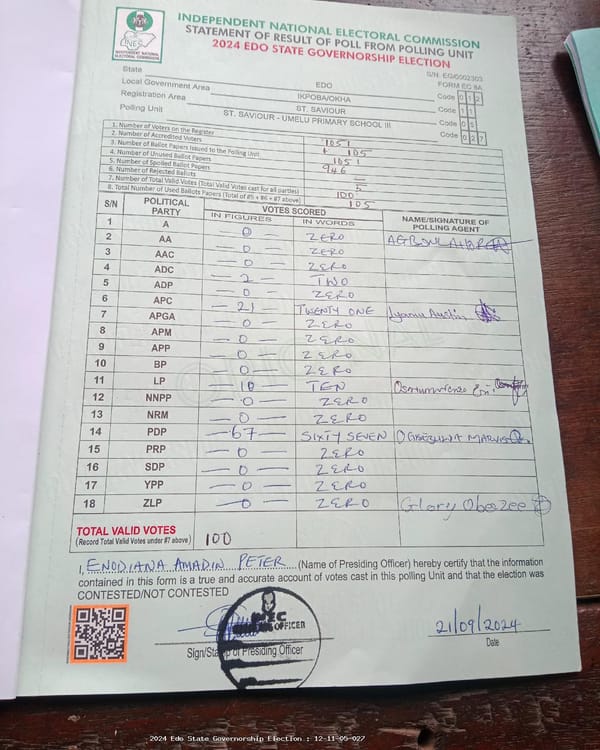 INDEPENDENT NATIONAL ELECTORAL COMMISSION
STATEMENT OF RESULT OF POLL FROM POLLING UNIT
2024 EDO STATE GOVERNORSHIP ELECTION
INEC
INDEPENDENT NATIONAL ELECTORAL COMMISSION
S/N. EG/0002303
FORM EC 8A
State EDO Code 1 2
Local Government Area IKPOBA/OKHA Code 1 1
Registration Area ST. SAVIOUR Code 0 5
Polling Unit ST. SAVIOUR - UMELU PRIMARY SCHOOL III Code 0 2 7
1. Number of Voters on the Register 1051
2. Number of Accredited Voters 105
3. Number of Ballot Papers Issued to the Polling Unit 1051
4. Number of Unused Ballot Papers 946
5. Number of Spoiled Ballot Papers —
6. Number of Rejected Ballots 5
7. Number of Total Valid Votes (Total Valid Votes cast for all parties) 100
8. Total Number of Used Ballots Papers (Total of #5 + #6 + #7 above) 105
S/N POLITICAL PARTY VOTES SCORED NAME/SIGNATURE OF POLLING AGENT
IN FIGURES IN WORDS
1 A 0 ZERO
2 AA — 0 — ZERO
3 AAC — 0 — ZERO
4 ADC — 2 — TWO
5 ADP — 0 — ZERO
6 APC — 21 — TWENTY ONE Iyamu Austin
7 APGA — 0 — ZERO
8 APM — 0 — ZERO
9 APP — 0 — ZERO
10 BP — 0 — ZERO
11 LP — 10 — TEN
12 NNPP — 0 — ZERO
13 NRM — 0 — ZERO
14 PDP — 67 — SIXTY SEVEN
15 PRP — 0 — ZERO
16 SDP — 0 — ZERO
17 YPP — 0 — ZERO
18 ZLP — 0 — ZERO Glory Obazee
TOTAL VALID VOTES 100
(Record Total Valid Votes under #7 above)
I, ENODIANA AMADIN PETER (Name of Presiding Officer) hereby certify that the information
contained in this form is a true and accurate account of votes cast in this polling Unit and that the election was
CONTESTED/NOT CONTESTED
INEC
OFFICER
21/09/2024
Sign/Stamp of Presiding Officer Date
2024 Edo State Governorship Election : 12-11-05-027